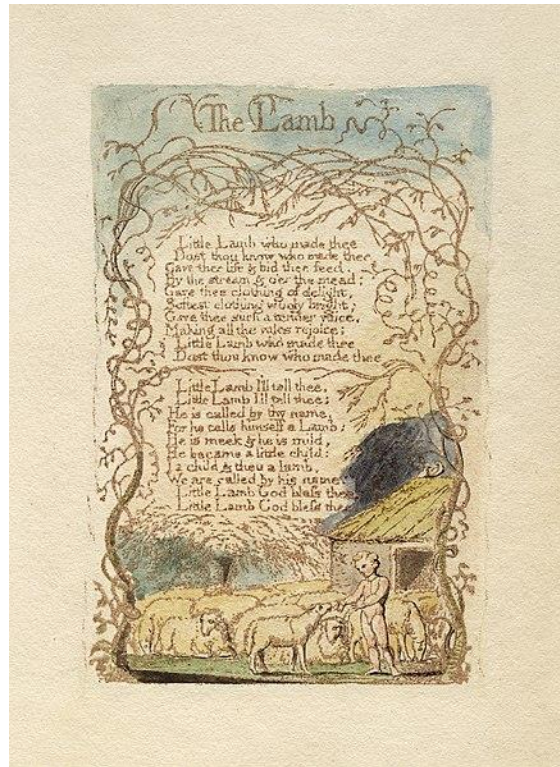 The Lamb
Little Lamb who made thee
Dost thou know who made thee
Gave thee life & bid thee feed.
By the stream & o'er the mead;
Gave thee clothing of delight,
Softest clothing wooly bright;
Gave thee such a tender voice,
Making all the vales rejoice;
Little Lamb who made thee
Dost thou know who made thee
Little Lamb I'll tell thee,
Little Lamb I'll tell thee;
He is called by thy name,
For he calls himself a Lamb;
He is meek & he is mild,
He became a little child;
I a child & thou a lamb,
We are called by his name.
Little Lamb God bless thee,
Little Lamb God bless thee.